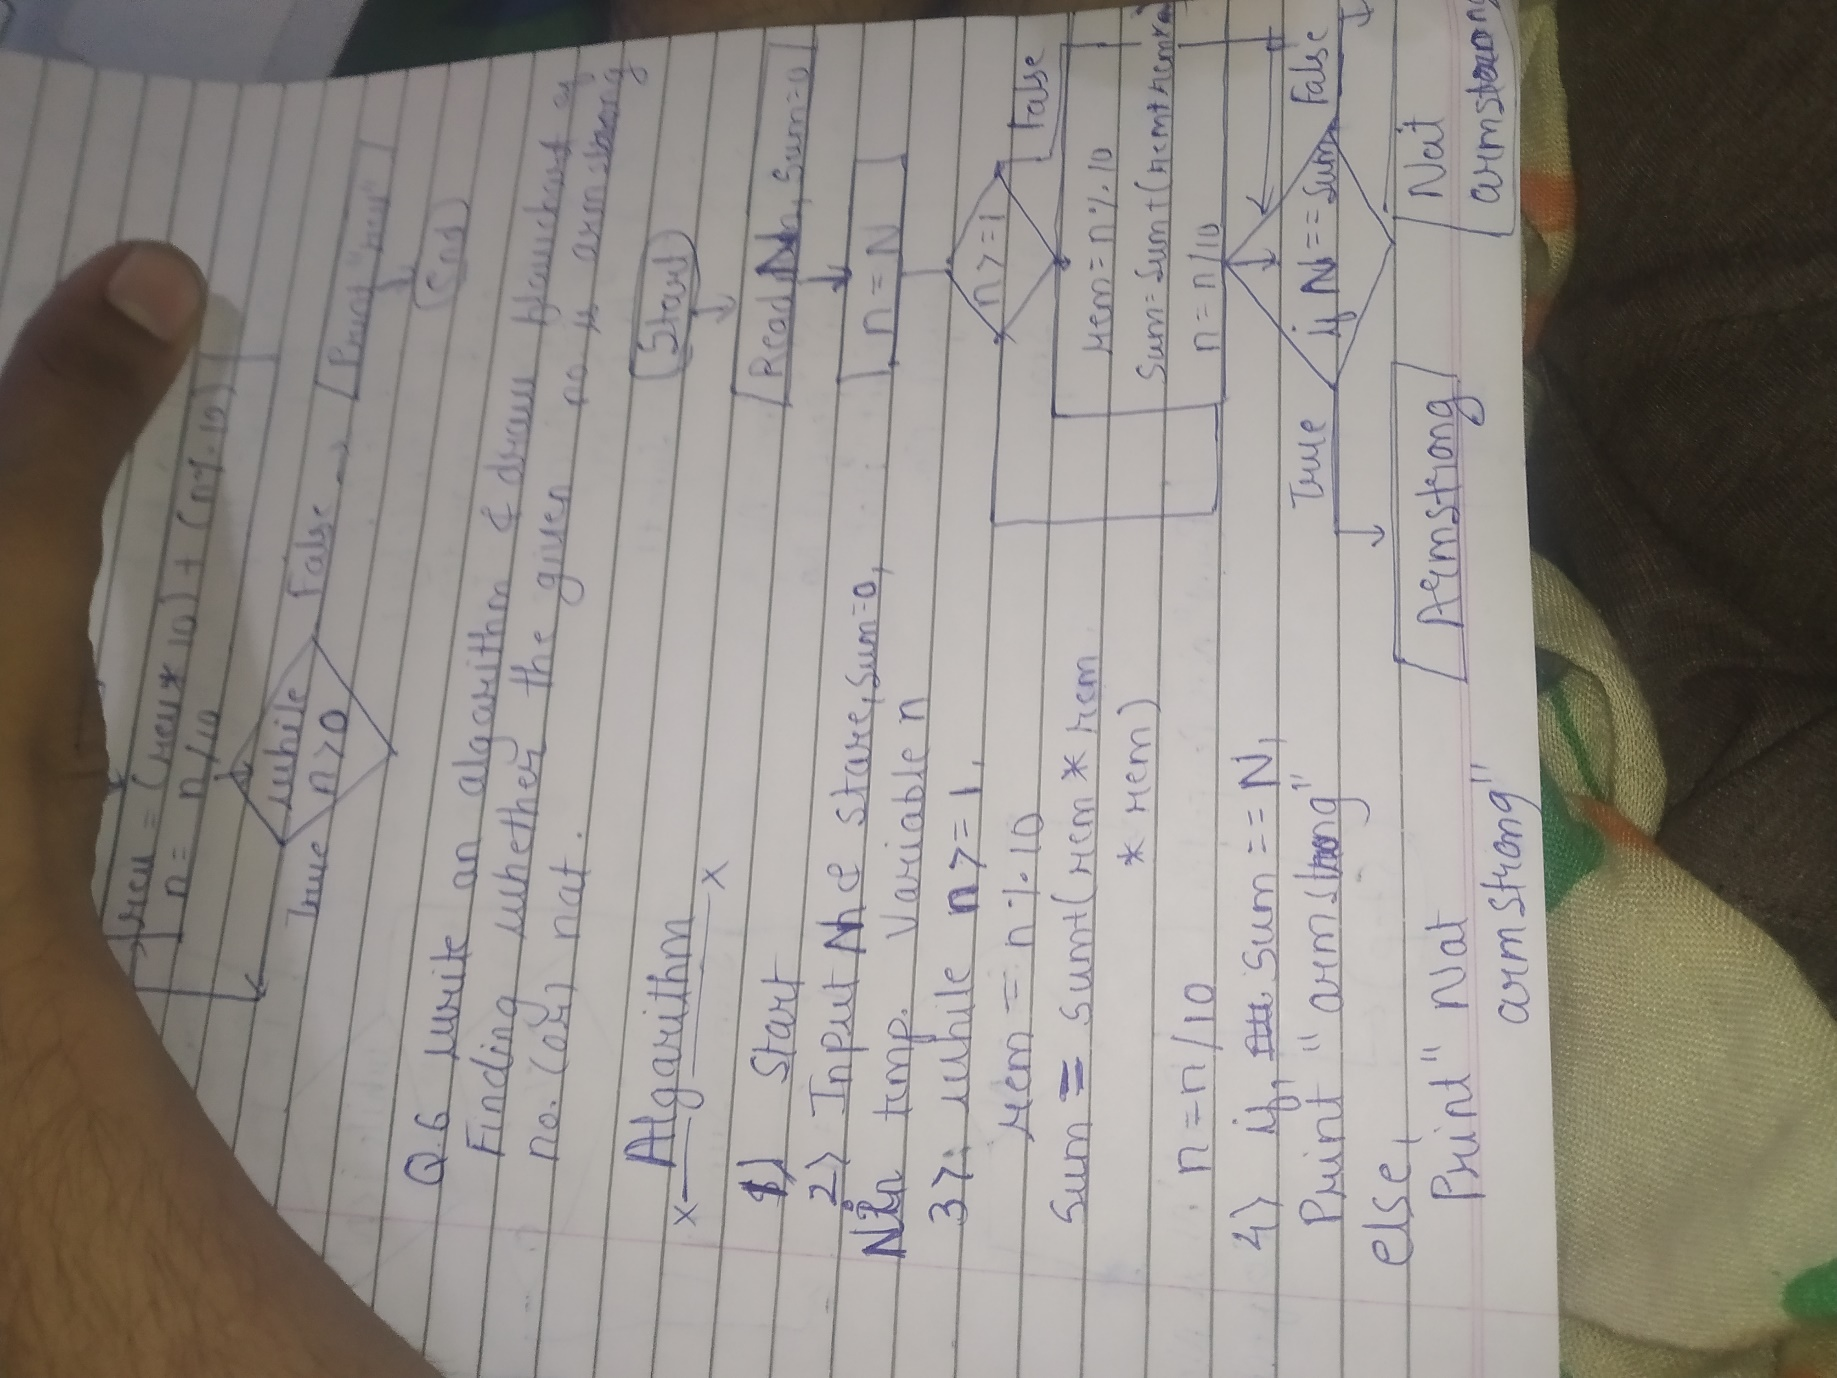 rev = (rev * 10) + (n % 10)
n = n/10
while
n>0
True
False →
Print "rev"
End
Q.6 write an algorithm & draw flowchart of
Finding whether the given no is armstrong
no. (or) not.
Algorithm
x x
1) Start
2) Input N & store, sum=0,
N in temp. Variable n
3) while n>=1,
rem = n % 10
Sum = sum+(rem * rem
* rem)
n = n/10
4) if, sum == N,
Print "armstrong"
else,
Print "Not
armstrong"
Start
Read N, Sum=0
n = N
n>=1
False
rem = n % 10
Sum = Sum+(rem*rem*
n = n/10
if N == Sum
True
False
Armstrong
Not
armstrong